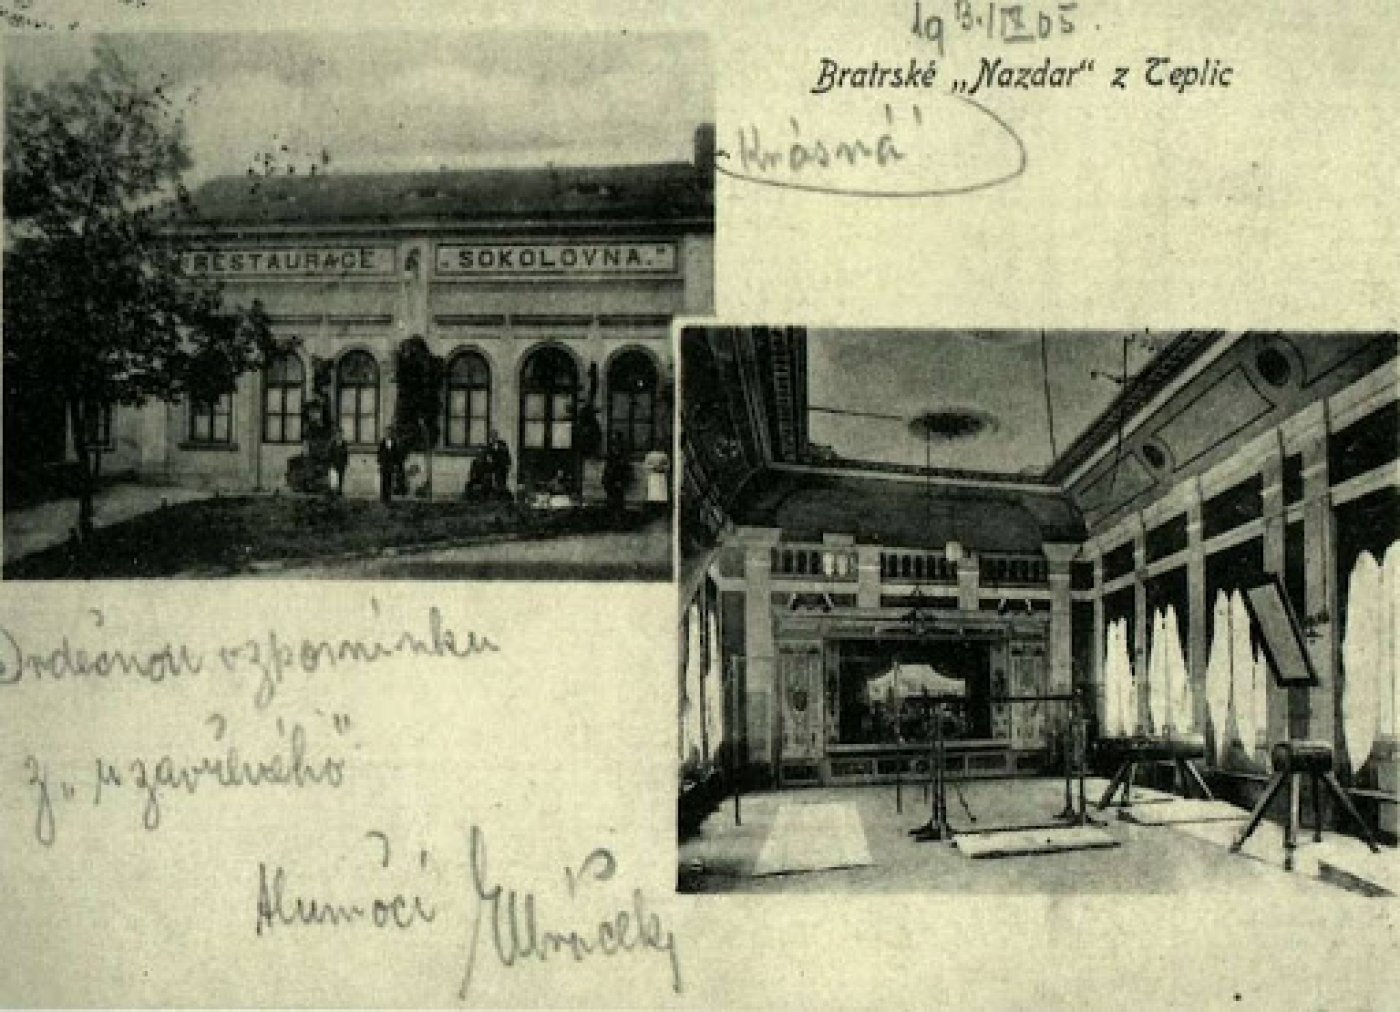 19 3./IX 05.
Bratrské „Nazdar“ z Teplic
Krásná
RESTAURACE
„SOKOLOVNA.“
Srdečnou vzpomínku
z „uzavřeného“